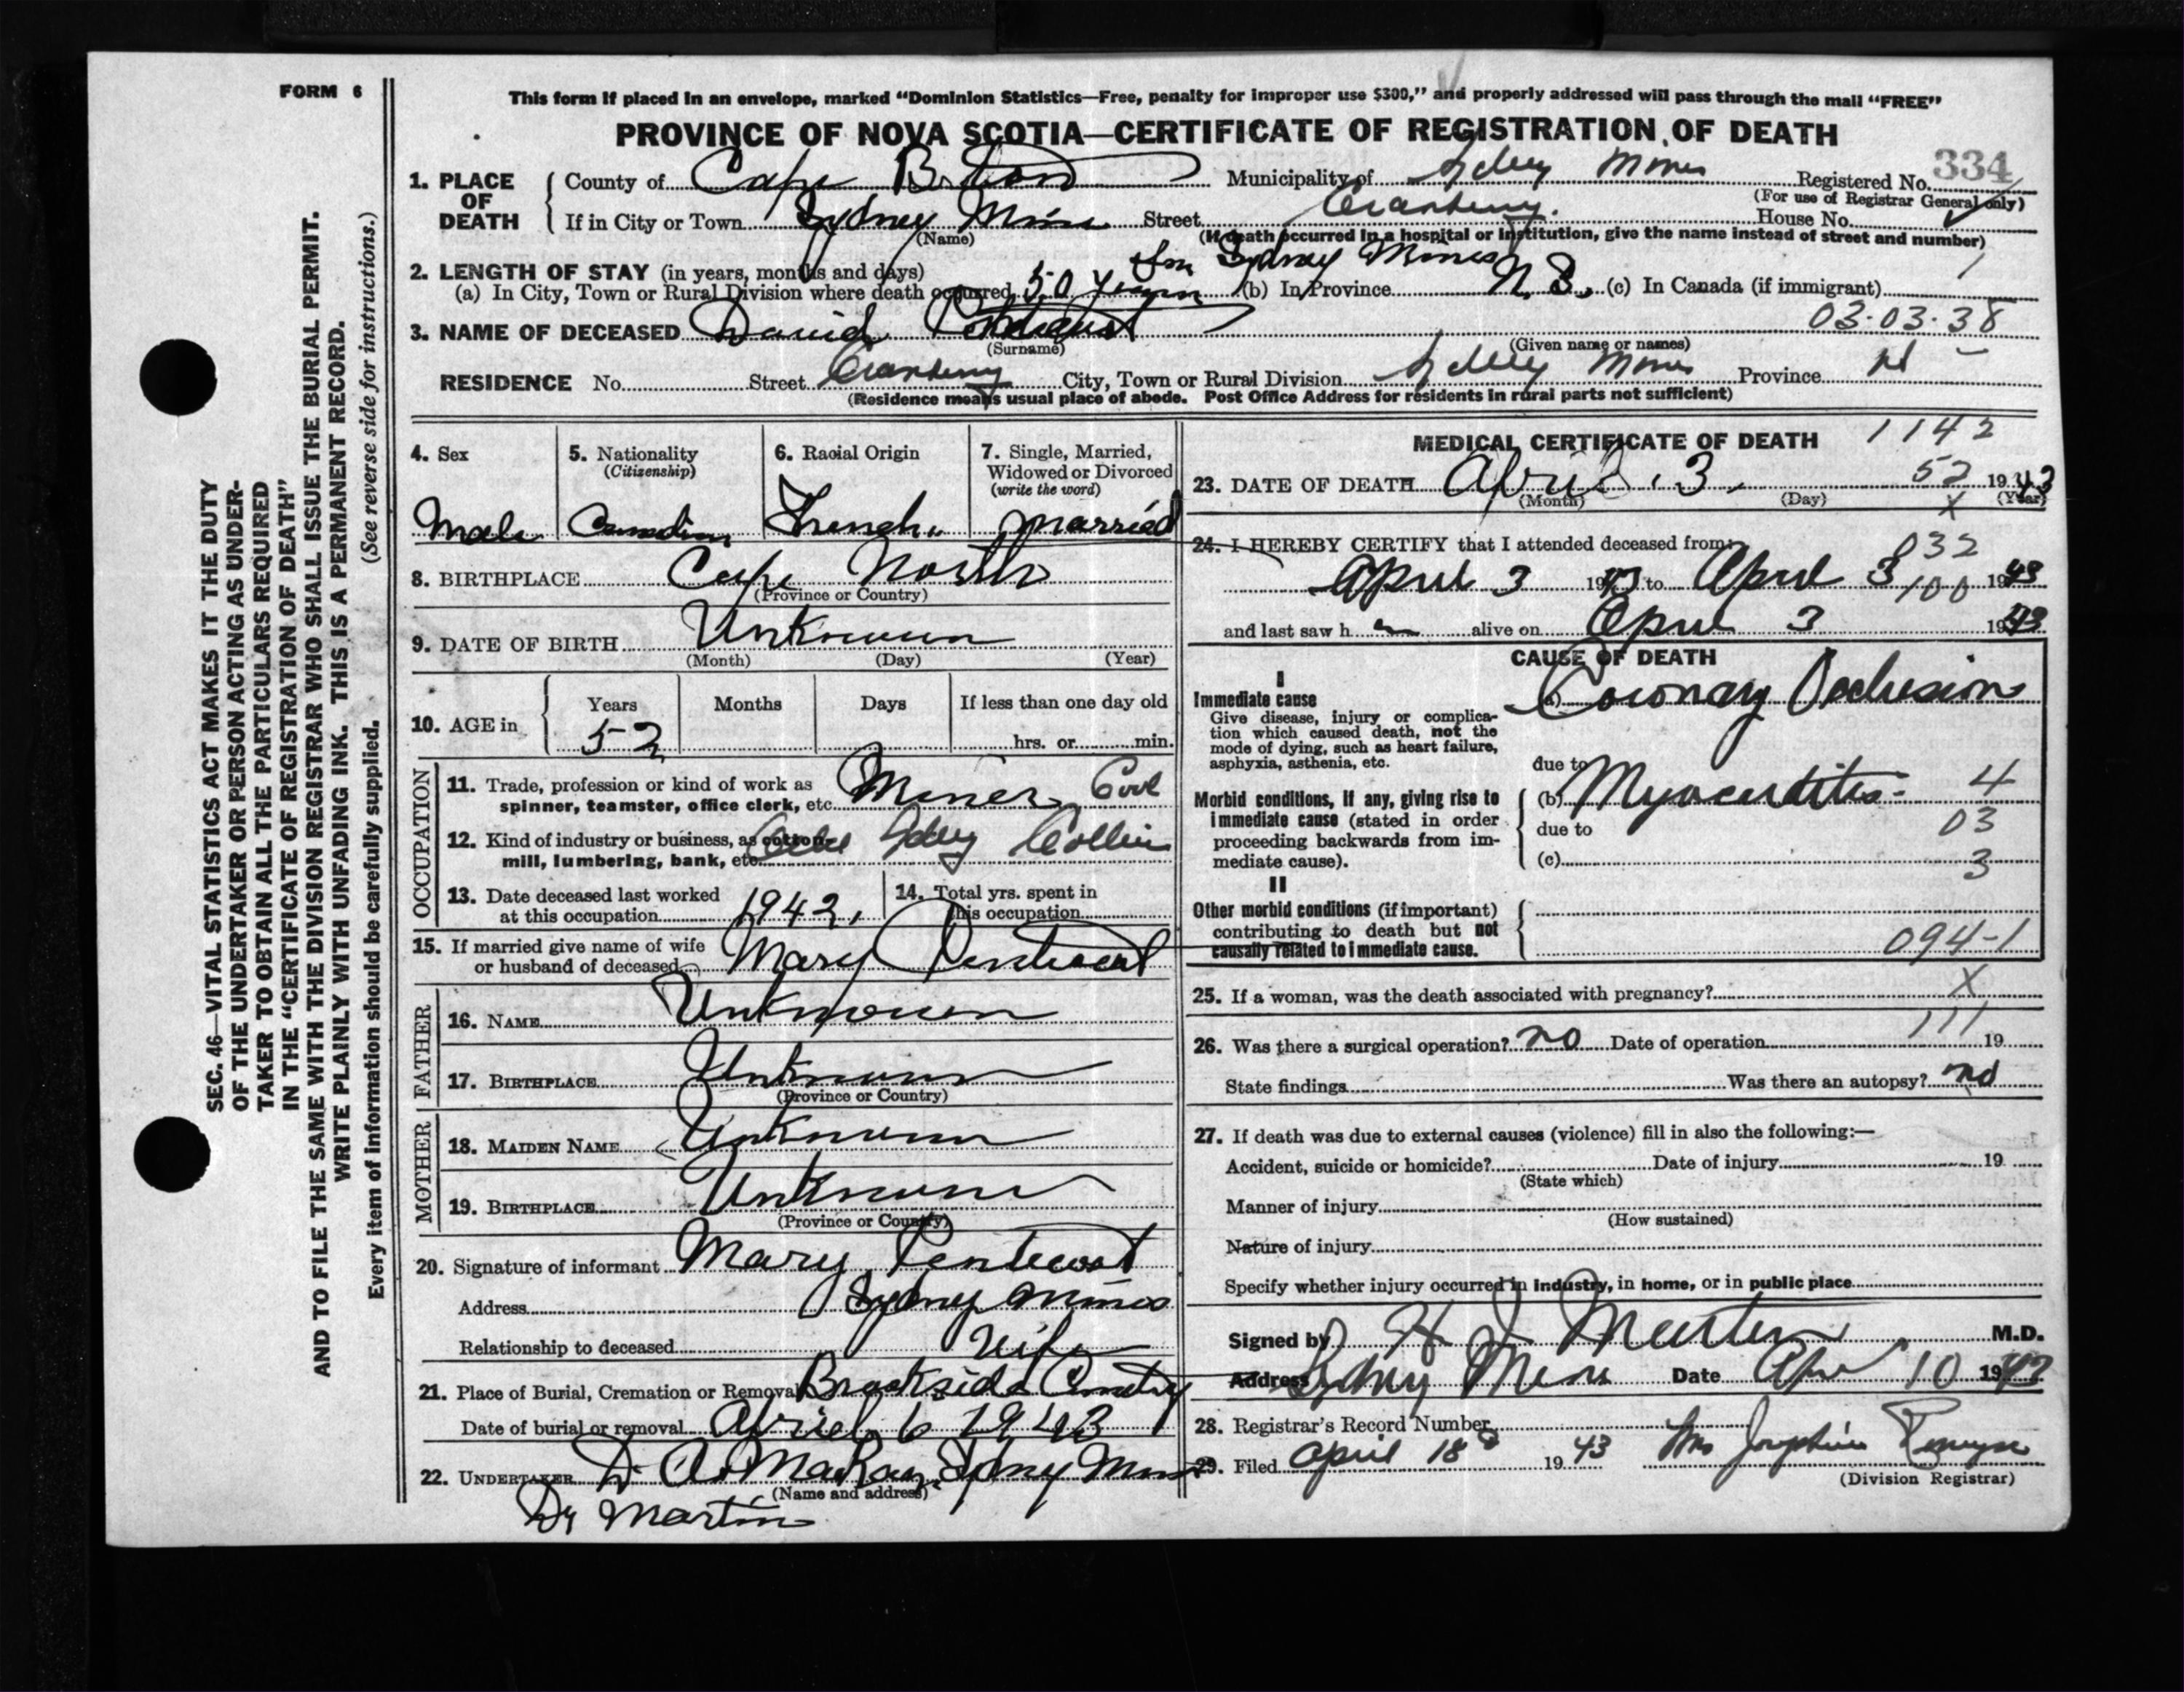 FORM 6
This form if placed in an envelope, marked “Dominion Statistics—Free, penalty for improper use $300,” and properly addressed will pass through the mail “FREE”
PROVINCE OF NOVA SCOTIA—CERTIFICATE OF REGISTRATION OF DEATH
334
1. PLACE OF DEATH County of Cape Breton Municipality of Sydney Mines Registered No.
(For use of Registrar General only)
If in City or Town Sydney Mines Street Cranberry. House No.
(Name) (If death occurred in a hospital or institution, give the name instead of street and number)
2. LENGTH OF STAY (in years, months and days) Sydney Mines
(a) In City, Town or Rural Division where death occurred 50 years (b) In Province N.S. (c) In Canada (if immigrant) 1
3. NAME OF DECEASED David 03-03-38
(Surname) (Given name or names)
RESIDENCE No. Street Cranberry City, Town or Rural Division Sydney Mines Province
(Residence means usual place of abode. Post Office Address for residents in rural parts not sufficient)
4. Sex 5. Nationality 6. Racial Origin 7. Single, Married,
(Citizenship) Widowed or Divorced
(write the word)
Male Canadian French married
8. BIRTHPLACE Cape North
(Province or Country)
9. DATE OF BIRTH Unknown
(Month) (Day) (Year)
10. AGE in Years Months Days If less than one day old
52 hrs. or min.
OCCUPATION
11. Trade, profession or kind of work as Miner Coal
spinner, teamster, office clerk, etc.
12. Kind of industry or business, as cotton Sydney
mill, lumbering, bank, etc.
13. Date deceased last worked 14. Total yrs. spent in
at this occupation 1942, this occupation
15. If married give name of wife Mary Pentecost
or husband of deceased
FATHER
16. NAME Unknown
17. BIRTHPLACE Unknown
(Province or Country)
MOTHER
18. MAIDEN NAME Unknown
19. BIRTHPLACE Unknown
(Province or Country)
20. Signature of informant Mary Pentecost
Address Sydney Mines
Relationship to deceased Wife
21. Place of Burial, Cremation or Removal Brookside Cemetry
Date of burial or removal April 6 1943
22. UNDERTAKER D. A. MacRae, Sydney Mines
(Name and address)
Dr Martin
MEDICAL CERTIFICATE OF DEATH 1142
23. DATE OF DEATH April 3, 52 1943
(Month) (Day) (Year)
X
24. I HEREBY CERTIFY that I attended deceased from: 032
April 3 1943 to April 3 100 1943
and last saw h alive on April 3 1943
CAUSE OF DEATH
I
Immediate cause (a) Coronary Occlusion
Give disease, injury or complication which caused death, not the
mode of dying, such as heart failure,
asphyxia, asthenia, etc. due to
Morbid conditions, if any, giving rise to (b) Myocarditis 4
immediate cause (stated in order due to 03
proceeding backwards from im-
mediate cause). (c) 3
II
Other morbid conditions (if important)
contributing to death but not
causally related to immediate cause. 094-1
25. If a woman, was the death associated with pregnancy? X
111
26. Was there a surgical operation? no Date of operation 19
State findings Was there an autopsy? no
27. If death was due to external causes (violence) fill in also the following:—
Accident, suicide or homicide? Date of injury 19
(State which)
Manner of injury
(How sustained)
Nature of injury
Specify whether injury occurred in industry, in home, or in public place
Signed by H J Martin M.D.
Address Sydney Mines Date Apr 10 1943
28. Registrar's Record Number
29. Filed April 18 1943 Mrs Josephine
(Division Registrar)
SEC. 46—VITAL STATISTICS ACT MAKES IT THE DUTY
OF THE UNDERTAKER OR PERSON ACTING AS UNDER-
TAKER TO OBTAIN ALL THE PARTICULARS REQUIRED
IN THE “CERTIFICATE OF REGISTRATION OF DEATH”
AND TO FILE THE SAME WITH THE DIVISION REGISTRAR WHO SHALL ISSUE THE BURIAL PERMIT.
WRITE PLAINLY WITH UNFADING INK. THIS IS A PERMANENT RECORD.
Every item of information should be carefully supplied. (See reverse side for instructions.)